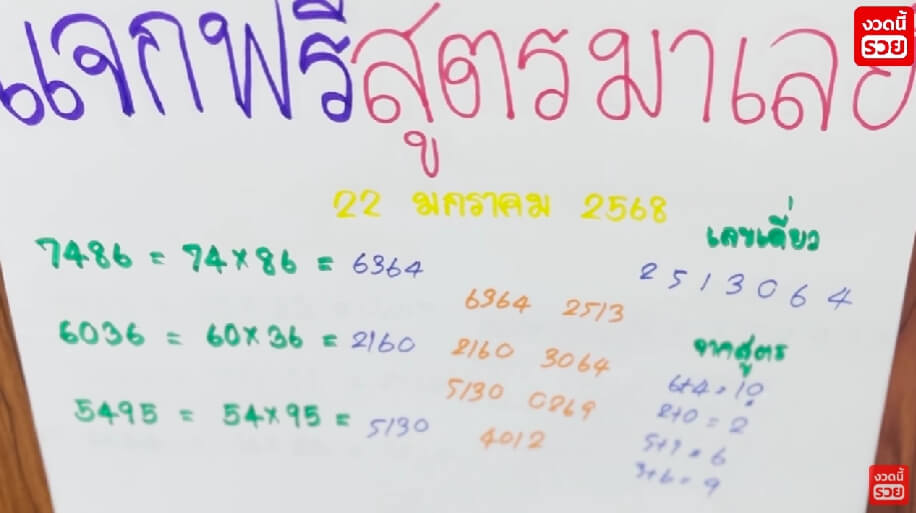 แจกฟรีสูตรมาเลย
งวดนี้
รวย
22 มกราคม 2568
เลขเดี่ยว
7486 = 74x86 = 6364
2 5 1 3 0 6 4
6364 2513
6036 = 60x36 = 2160
2160 3064
จากสูตร
6+4=10
5130 0269
2+0=2
5495 = 54x95 = 5130
4012
5+1=6
3+6=9
งวดนี้
รวย